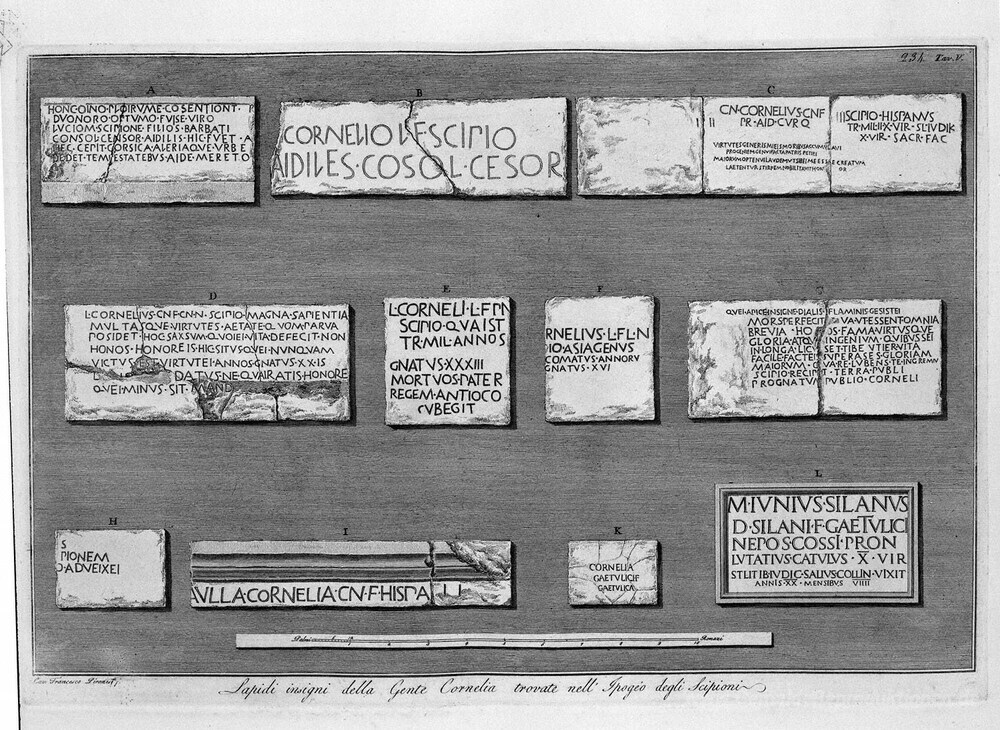 234. Tav. V.
A
HONC·OINO·PLOIRVME·COSENTIONT·R
DVONORO·OPTVMO·FVISE·VIRO
LVCIOM·SCIPIONE·FILIOS·BARBATI
CONSOL·CENSOR·AIDILIS·HIC·FVET·A
HEC·CEPIT·CORSICA·ALERIAQVE·VRBE
DEDET·TEMPESTATEBVS·AIDE·MERETO
B
CORNELIO L F SCIPIO
AIDILES·COSOL·CESOR
C
CN·CORNELIVS·CN·F
PR·AID·CVR·Q
VIRTVTES GENERIS MIEIS MORIBVS ACCVMVLAVI
PROGENIEM GENVI FACTA PATRIS PETIEI
MAIORVM OPTENVI LAVDEM VT SIBEI ME ESSE CREATVM
LAETENTVR STIRPEM NOBILITAVIT HONOR
SCIPIO·HISPANVS
TR·MIL·II·X·VIR·SL·IVDIK
X·VIR·SACR·FAC
D
L·CORNELIVS·CN·F·CN·N·SCIPIO·MAGNA·SAPIENTIA
MVLTASQVE·VIRTVTES·AETATE·QVOM·PARVA
POSIDET·HOC·SAXSVM·QVOIEI·VITA·DEFECIT·NON
HONOS·HONORE·IS·HIC·SITVS·QVEI·NVNQVAM
VICTVS·EST·VIRTVTEI·ANNOS·GNATVS·XX·IS
L DATVS·NE·QVAIRATIS·HONORE
QVEI·MINVS·SIT·MAND
E
L·CORNELI·L·F·P·N
SCIPIO·QVAIST
TR·MIL·ANNOS
GNATVS·XXXIII
MORTVOS·PATER
REGEM·ANTIOCO
SVBEGIT
F
RNELIVS·L·F·L·N
IO·ASIAGENVS
COMATVS·ANNORV
GNATVS·XVI
G
QVEI·APICE·INSIGNE·DIALIS·FLAMINIS·GESISTEI
MORS·PERFECIT VT·ESSENT·OMNIA
BREVIA·HONOS·FAMA·VIRTVSQVE
GLORIA·ATQVE INGENIVM·QVIBVS·SEI
IN·LONGA·LICVISET·TIBE·VTIER·VITA
FACILE·FACTEIS SVPERASES·GLORIAM
MAIORVM·QVA·RE·LVBENS·TE·IN·GREMIV
SCIPIO·RECIPIT·TERRA·PVBLI
PROGNATVM PVBLIO·CORNELI
H
S
PIONEM
O·ADVEIXEI
I
AVLLA·CORNELIA·CN·F·HISPALLI
K
CORNELIA
GAETVLICI·F
GAETVLICA
L
M·IVNIVS·SILANVS
D·SILANI·F·GAETVLICI
NEPOS·COSSI·PRON
LVTATIVS·CATVLVS·X·VIR
STLITIB·IVDIC·SALIVS·COLLIN·VIXIT
ANNIS·XX·MENSIBVS VIIII
Palmi Romani
Cav. Francesco Piranesi f.
Lapidi insigni della Gente Cornelia trovate nell' Ipogeo degli Scipioni